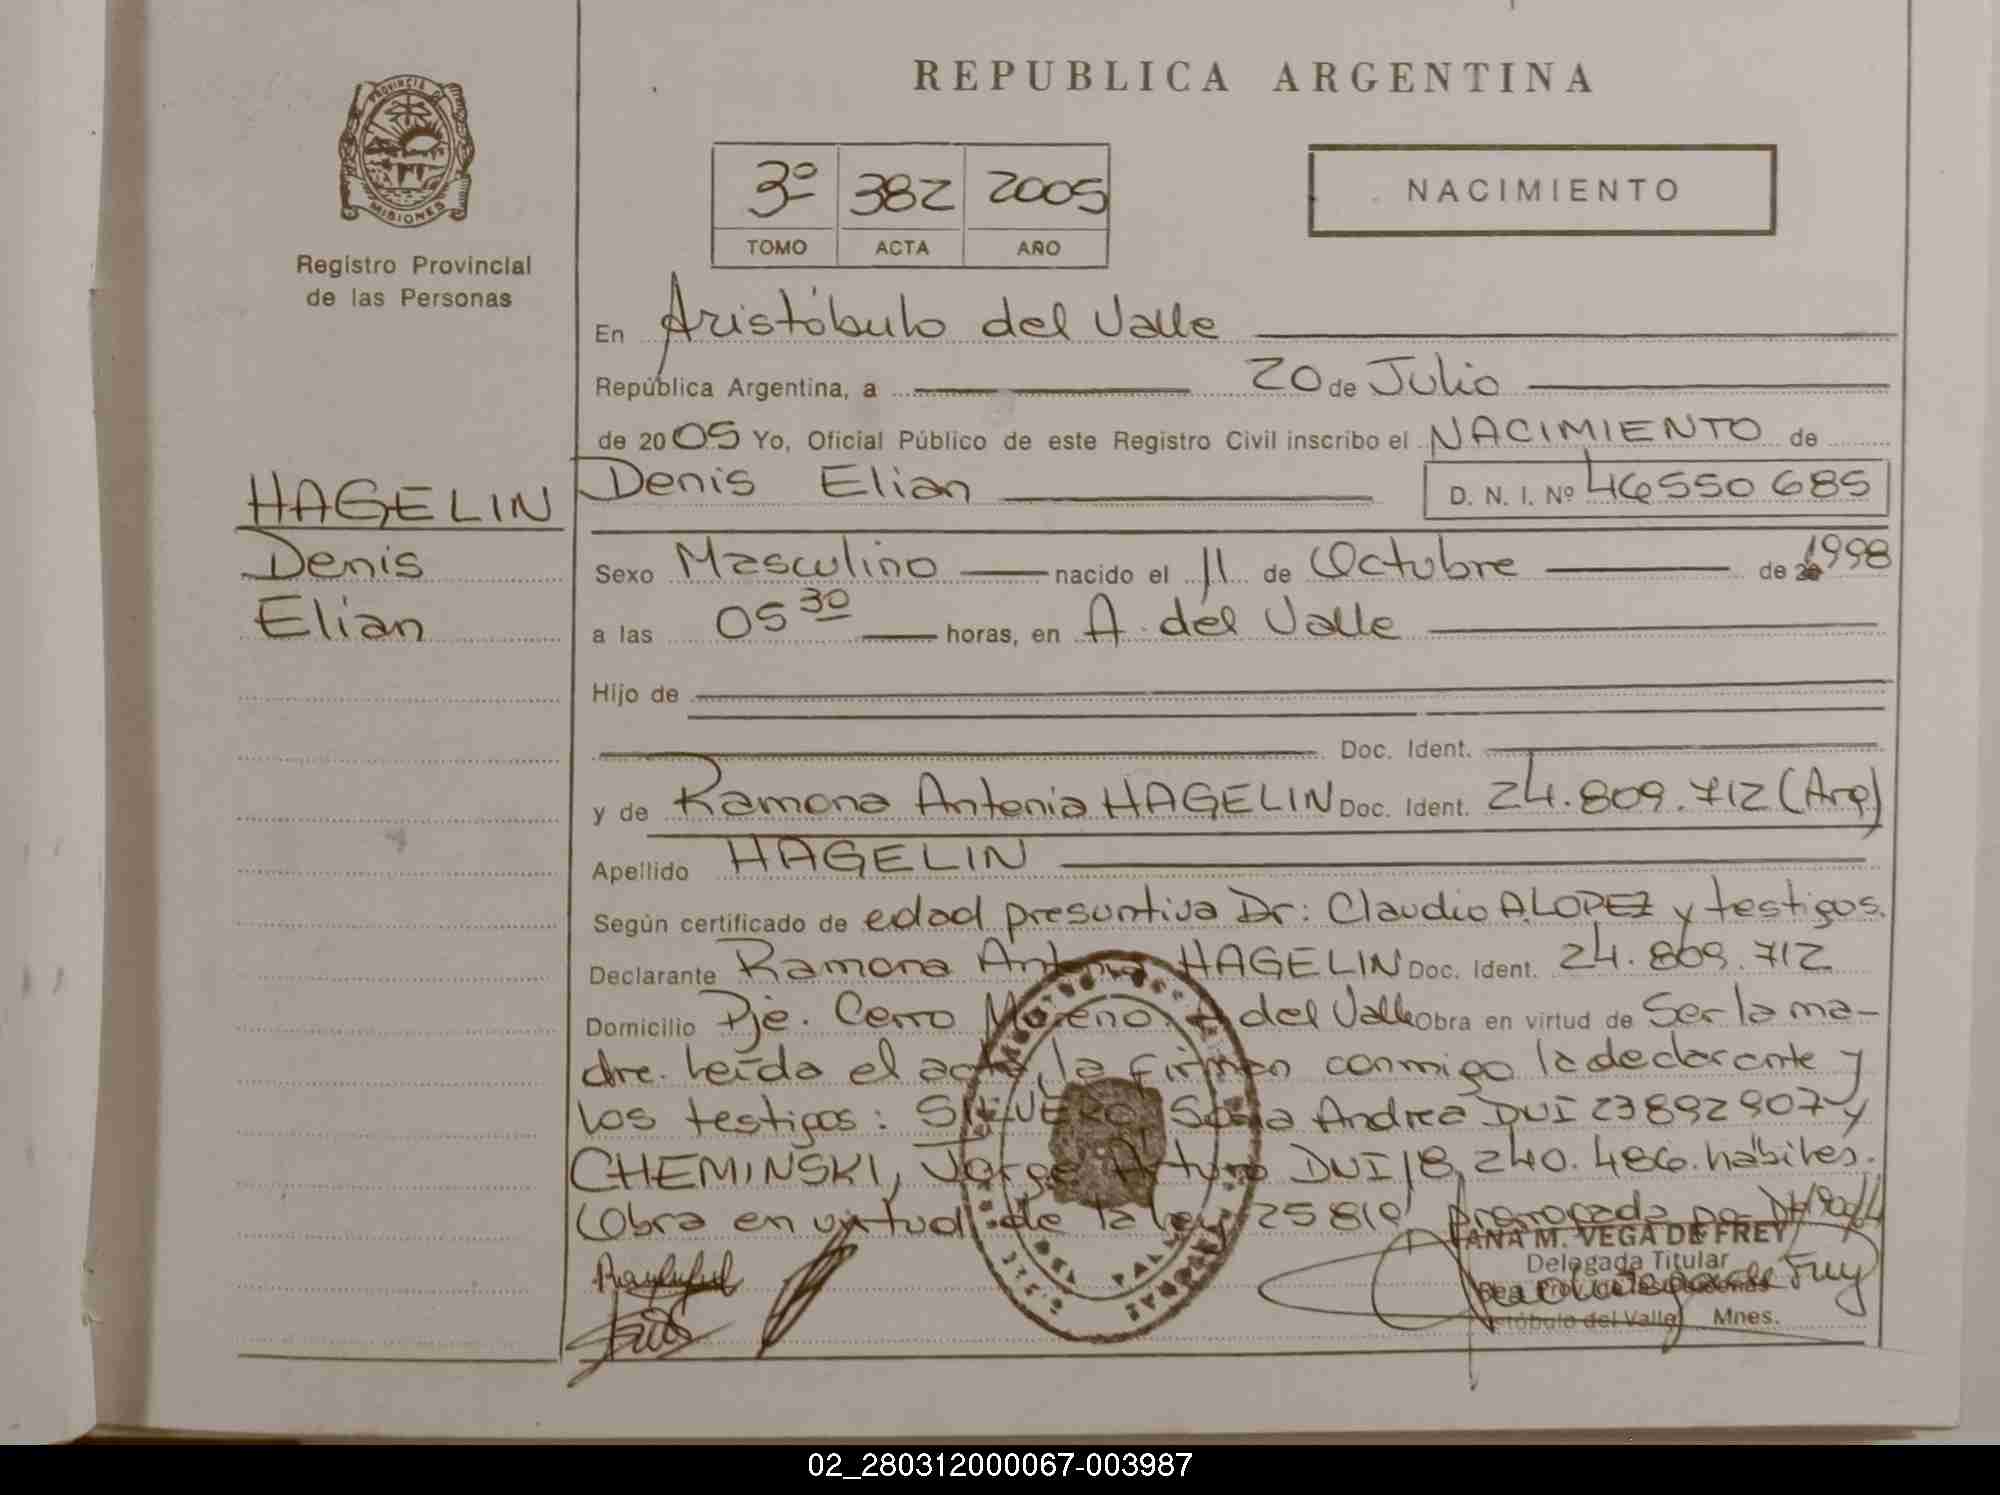 REPUBLICA ARGENTINA
PROVINCIA DE
MISIONES
Registro Provincial
de las Personas
3º 382 2005
TOMO ACTA AÑO
NACIMIENTO
En Aristóbulo del Valle
República Argentina, a 20 de Julio
de 2005 Yo, Oficial Público de este Registro Civil inscribo el NACIMIENTO de
HAGELIN
Denis
Elian
Denis Elian D. N. I. Nº 46550685
Sexo Masculino nacido el 11 de Octubre de 1998
a las 05 30 horas, en A. del Valle
Hijo de
Doc. Ident.
y de Ramona Antonia HAGELIN Doc. Ident. 24.809.712 (Arg)
Apellido HAGELIN
Según certificado de edad presuntiva Dr: Claudio A LOPEZ y testigos.
Declarante Ramona Antonia HAGELIN Doc. Ident. 24.809.712
Domicilio Pje. Cerro Moreno. A del Valle Obra en virtud de Ser la ma-
dre. Leída el acta, la firman conmigo la declarante y
los testigos: Andrea DUI 23892907 y
CHEMINSKI, Jorge Arturo DUI 18.240.486. hábiles.
Obra en virtud de la ley 25819
ANA M. VEGA DE FREY
Delegada Titular
del Valle Mnes.
02_280312000067-003987